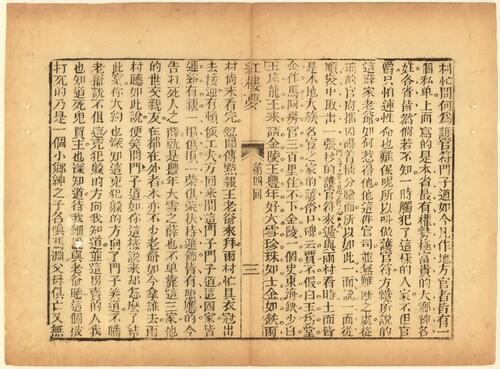 村忙問何為護官符門子道如今凡作地方官者皆有一
個私单上面寫的是本省最有權勢極富貴的大鄉紳名
姓各省皆然倘若不知一時觸犯了這樣的人家不但官
爵只怕連性命也難保呢所以叫做護官符方纔所說的
這薛家老爺如何惹得他他這件官司並無難斷之處從
前的官府都因碍着情分臉面所以如此一面說一面從
順袋中取出一張抄的護官符來遞與雨村看時上面皆
是本地大族名宦之家的諺俗口碑云賈不假白玉為堂
金作馬阿房宮三百里住不下金陵一個史東海缺少白
玉床龍王來請金陵王豐年好大雪珍珠如土金如鐵雨
紅樓夢 第四回 三
村尚未看完忽聞傳點報王老爺來拜雨村忙具衣冠出
去接迎有頓飯工夫方囘來問這門子門子道這四家皆
連絡有親一損俱損一榮俱榮扶持遮飾皆有照應的今
告打死人之薛就是豐年大雪之薛也不单靠這三家他
的世交親友在都在外者本亦不少老爺如今拿誰去雨
村聽如此說便笑問門子道這樣說來却怎麽了結
此案你大約也深知這兇犯躲的方向了門子笑道不瞞
老爺說不但這兇犯躲的方向我知道並這拐賣的人我
也知道死鬼買主也深知道待我細說與老爺聽這個被
打死的乃是一個小鄉紳之子名喚馮淵父母俱亡又無